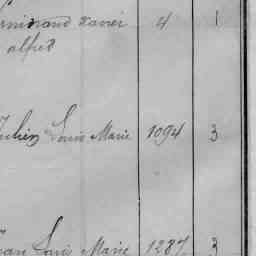 Xavier 4 1
alfred
Julien Louis Marie 1094 3
Jean Louis Marie 1287 3